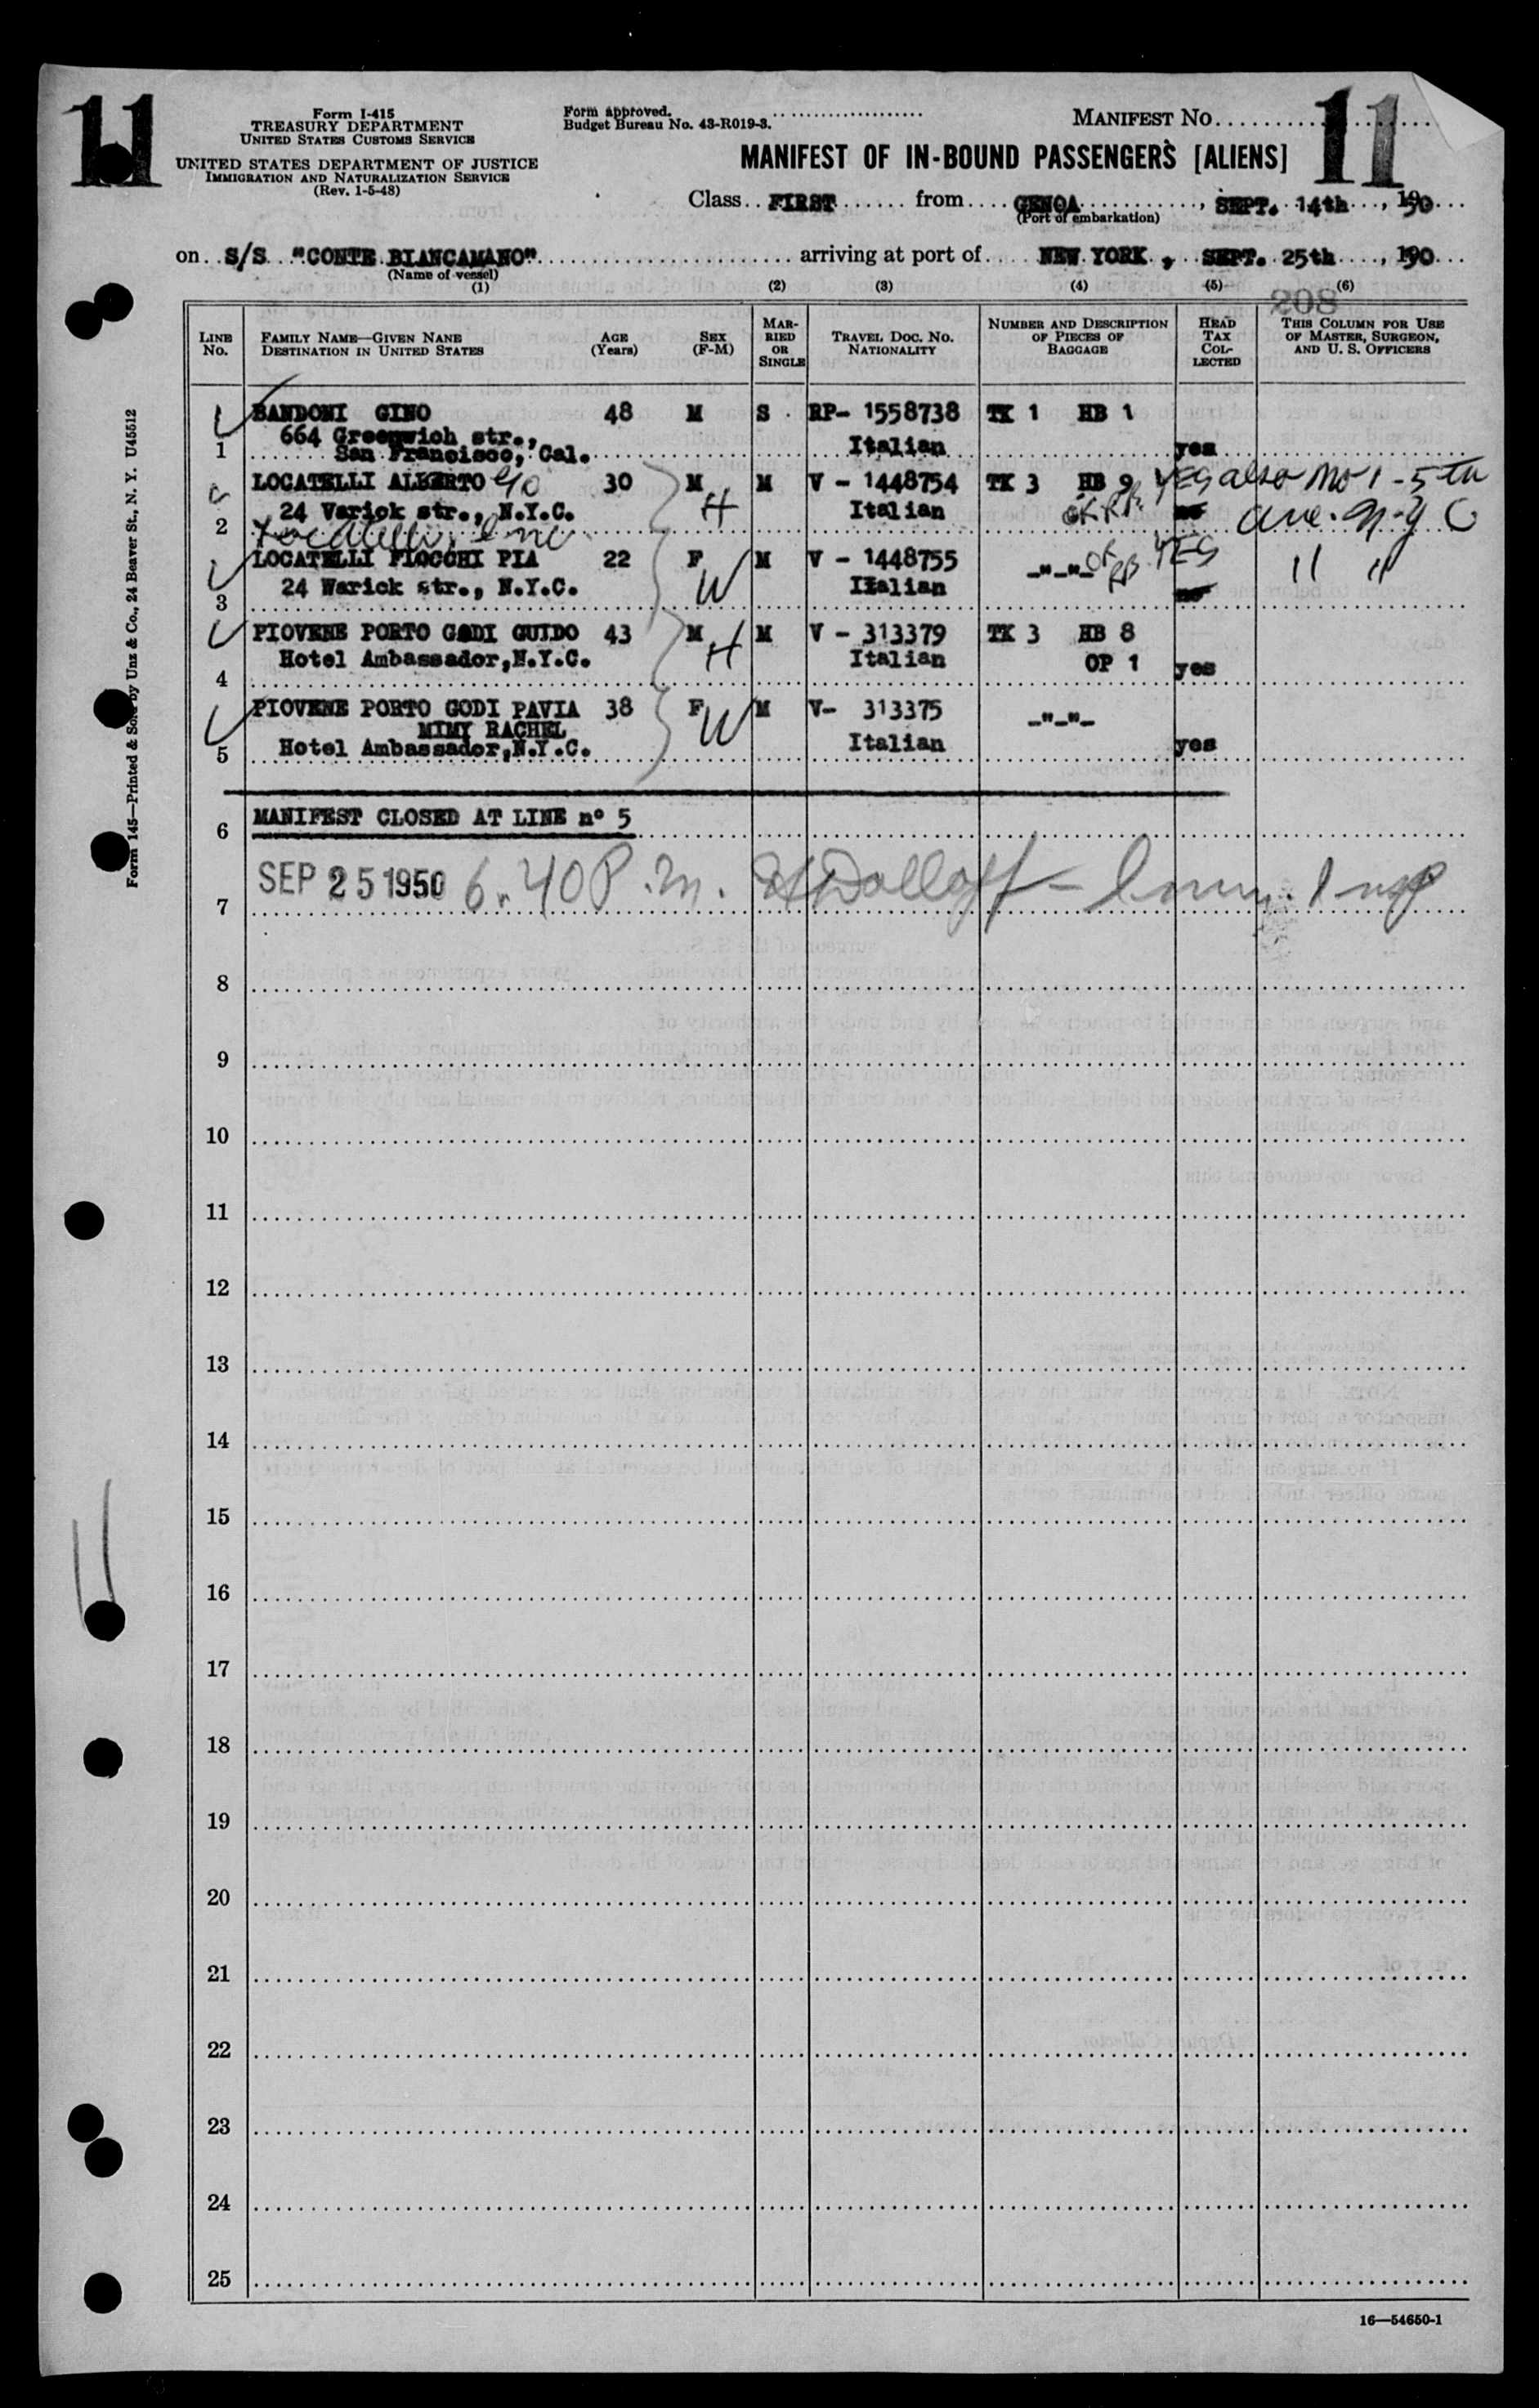 11
Form I-415
TREASURY DEPARTMENT
UNITED STATES CUSTOMS SERVICE
UNITED STATES DEPARTMENT OF JUSTICE
IMMIGRATION AND NATURALIZATION SERVICE
(Rev. 1-5-48)
Form approved.
Budget Bureau No. 43-R019-3.
MANIFEST NO.
11
MANIFEST OF IN-BOUND PASSENGERS [ALIENS]
Class FIRST from GENOA, SEPT. 14th, 1950
(Port of embarkation)
on S/S "CONTE BIANCAMANO" arriving at port of NEW YORK, SEPT. 25th, 1950
(Name of vessel)
(1) (2) (3) (4) (5) (6)
208
LINE No. FAMILY NAME—GIVEN NAME DESTINATION IN UNITED STATES AGE (Years) SEX (F-M) MARRIED OR SINGLE TRAVEL DOC. NO. NATIONALITY NUMBER AND DESCRIPTION OF PIECES OF BAGGAGE HEAD TAX COLLECTED THIS COLUMN FOR USE OF MASTER, SURGEON, AND U. S. OFFICERS
BANDONI GINO 48 M S RP- 1558738 TK 1 HB 1
664 Greenwich str., Italian
1 San Francisco, Cal. yes
LOCATELLI ALBERTO c/o 30 M M V - 1448754 TK 3 HB 9 YES also No 1 - 5th
24 Varick str., N.Y.C. H Italian OK RB no Ave. N-Y C
2 Locatelli, Inc
LOCATELLI FIOCCHI PIA 22 F M V - 1448755 -"-"- OK RB YES " "
24 Warick str., N.Y.C. W Italian no
3
PIOVENE PORTO GODI GUIDO 43 M M V - 313379 TK 3 HB 8
Hotel Ambassador, N.Y.C. H Italian OP 1 yes
4
PIOVENE PORTO GODI PAVIA 38 F M V- 313375 -"-"-
MIMI RACHEL W
5 Hotel Ambassador, N.Y.C. Italian yes
6 MANIFEST CLOSED AT LINE nº 5
7 SEP 25 1950 6.40 P.M. Dolloff - Imm. Insp
8
9
10
11
12
13
14
15
16
17
18
19
20
21
22
23
24
25
16—54650-1
Form 145—Printed & Sold by Unz & Co., 24 Beaver St., N. Y. U45512